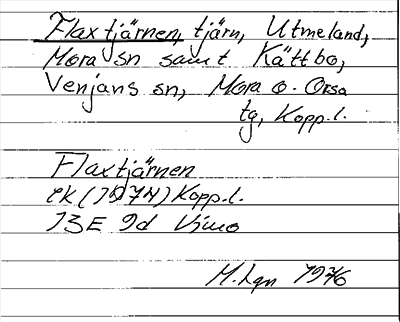 Flaxtjärnen, tjärn, Utmeland,
Mora sn samt Kättbo,
Venjans sn, Mora o. Orsa
tg, Kopp.l.
Flaxtjärnen
ek (1974) Kopp.l.
13E 9d Vimo
M.Lgn 1976